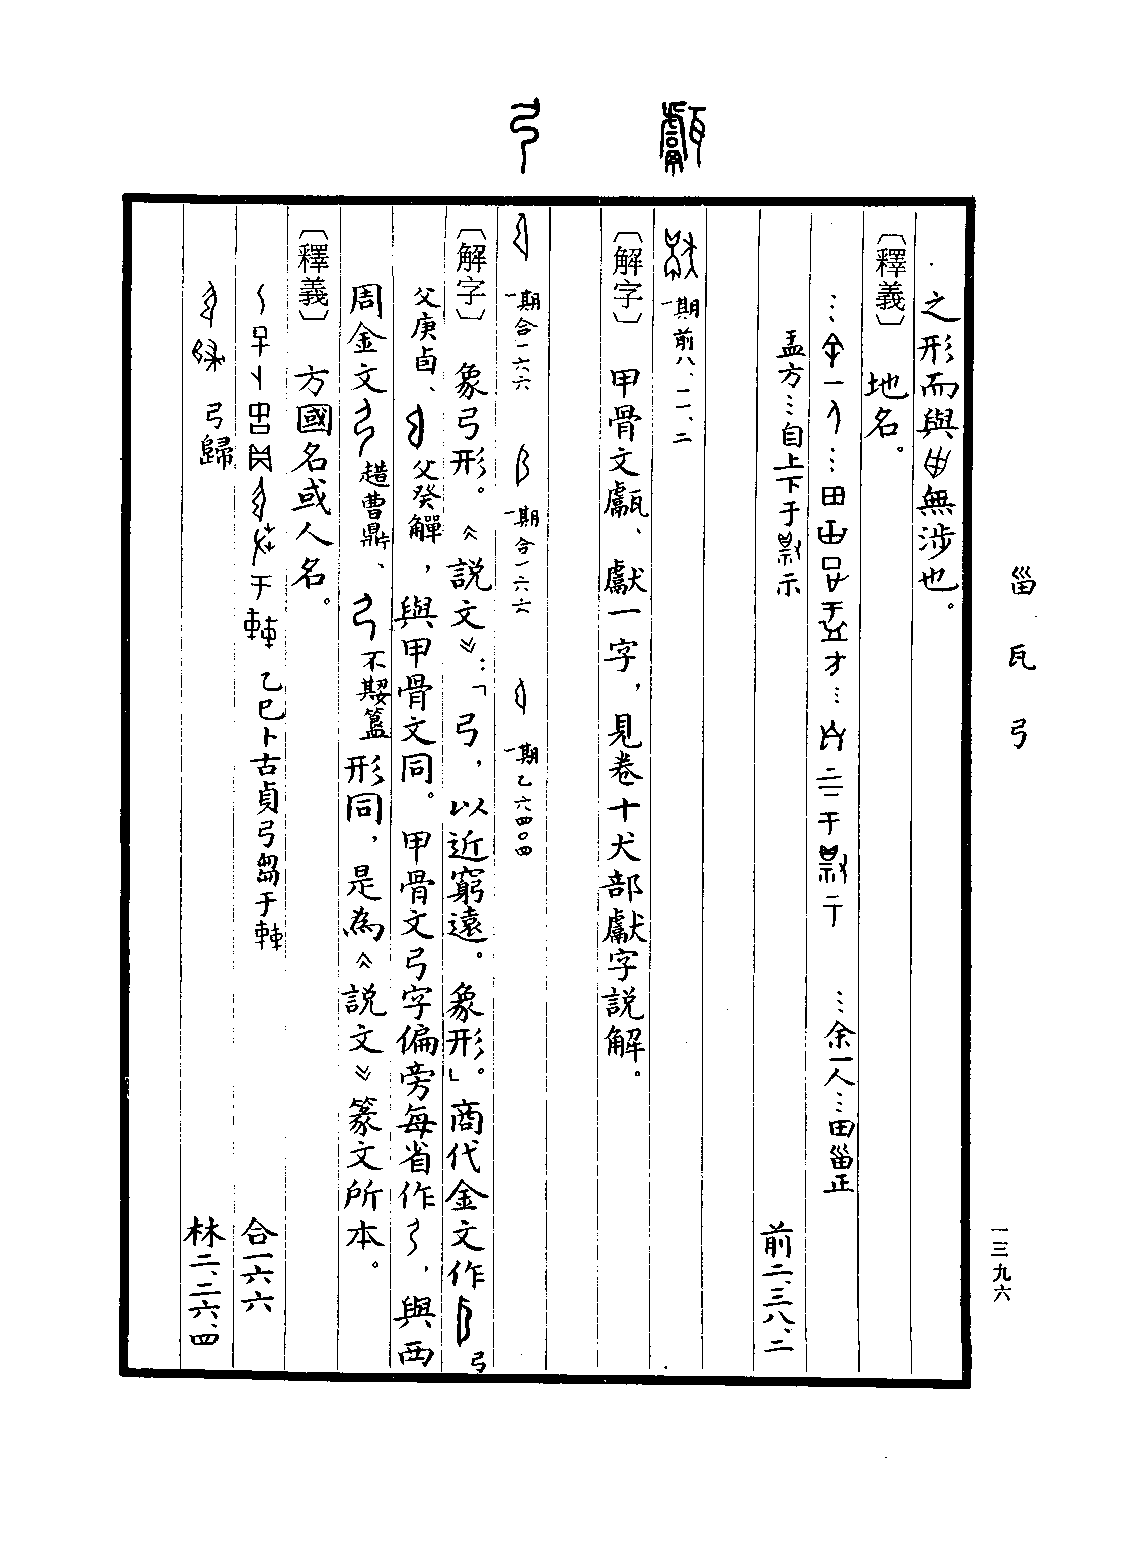 甾 瓦 弓
一三九六
甗
弓
之形而與無涉也。
〔釋義〕 地名。
…余一人…田甾正
盂方…自上下于示 前二、三八、二
一期前八、一一、二
〔解字〕 甲骨文甗、獻一字，見卷十犬部獻字説解。
一期合一六六 一期合一六六 一期乙六四〇四
〔解字〕 象弓形。《説文》：「弓，以近窮遠。象形。」商代金文作弓
父庚卣、父癸觶，與甲骨文同。甲骨文弓字偏旁每省作，與西
周金文趞曹鼎、不𡢁簋形同，是為《説文》篆文所本。
〔釋義〕 方國名或人名。
乙巳卜古貞弓芻于 合一六六
弓歸 林二、二六、四